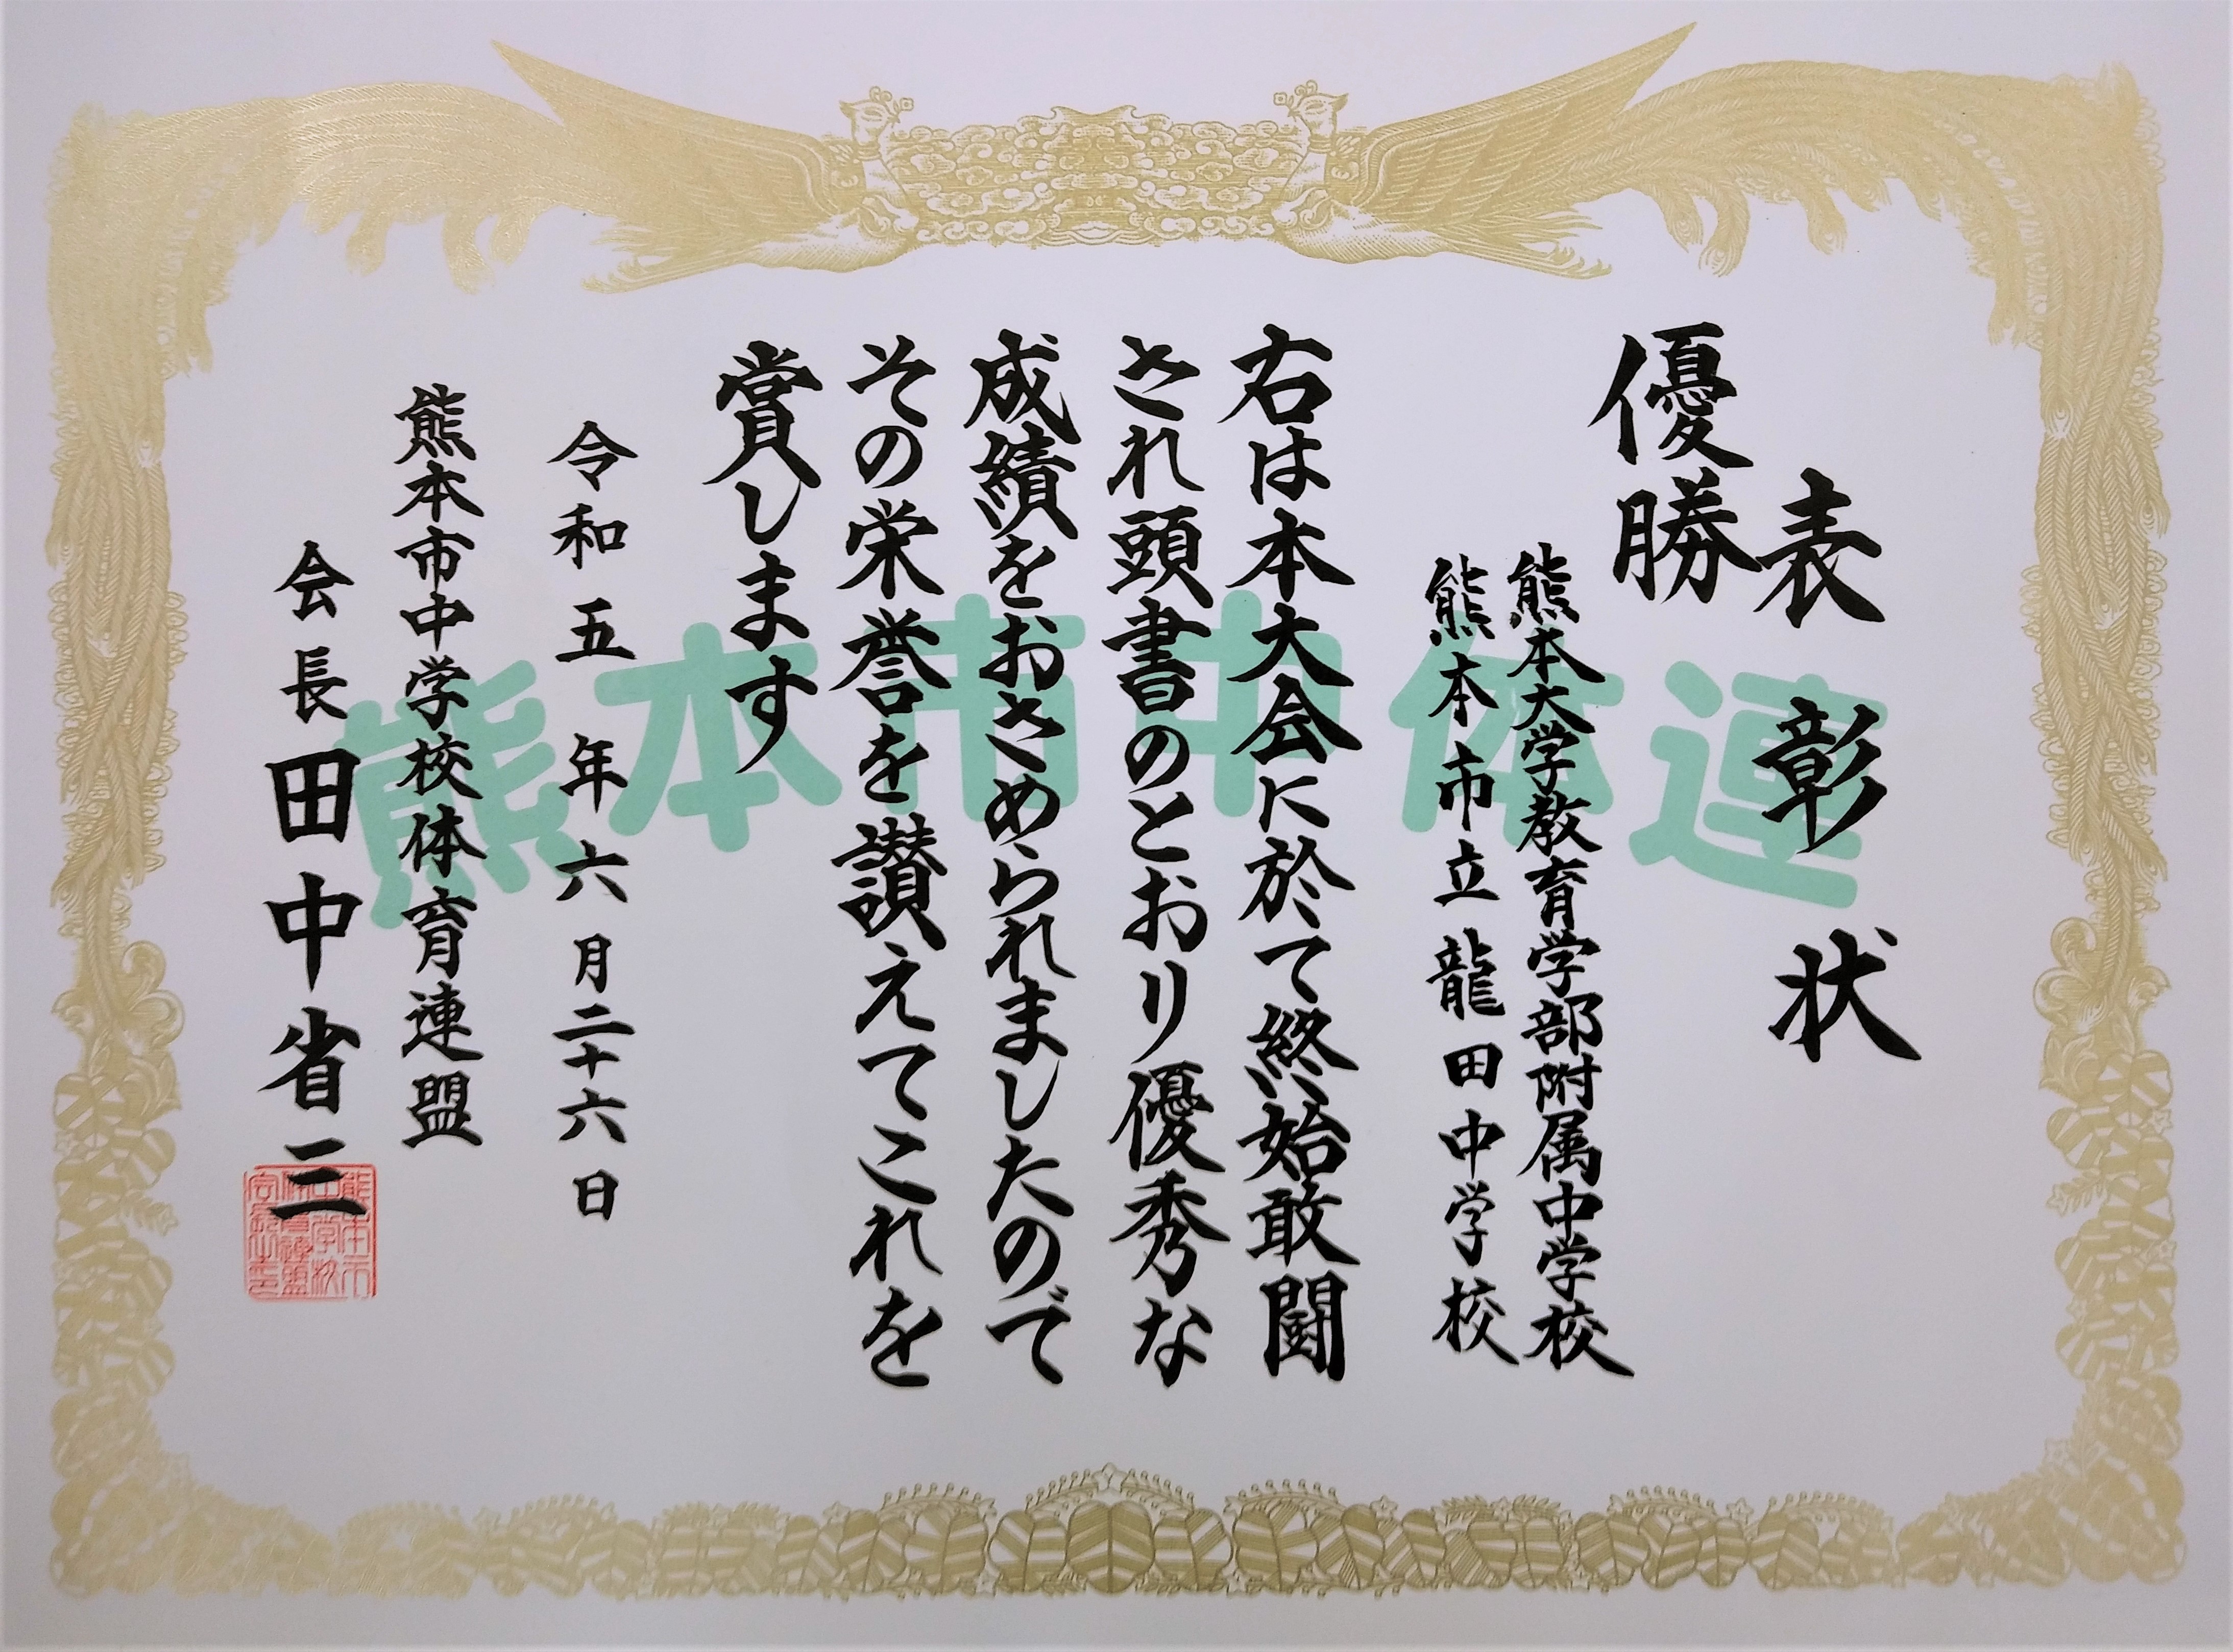 表彰状
優勝
熊本大学教育学部附属中学校
熊本市立龍田中学校
右は本大会に於て終始敢闘
され頭書のとおり優秀な
成績をおさめられましたので
その栄誉を讃えてこれを
賞します
令和五年六月二十六日
熊本市中学校体育連盟
会長田中省三
熊本市中体連